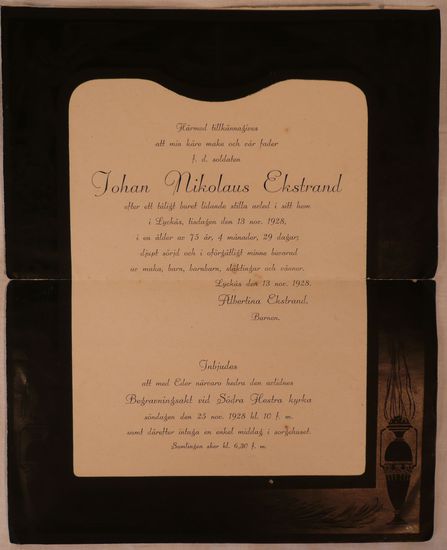 Härmed tillkännagives
att min käre make och vår fader
f. d. soldaten
Johan Nikolaus Ekstrand
efter ett tåligt buret lidande stilla avled i sitt hem
i Lyckås, tisdagen den 13 nov. 1928,
i en ålder av 75 år, 4 månader, 29 dagar;
djupt sörjd och i oförgätligt minne bevarad
av maka, barn, barnbarn, släktingar och vänner.
Lyckås den 13 nov. 1928.
Albertina Ekstrand.
Barnen.
Inbjudes
att med Eder närvaro hedra den avlidnes
Begravningsakt vid Södra Hestra kyrka
söndagen den 25 nov. 1928 kl. 10 f. m.
samt därefter intaga en enkel middag i sorgehuset.
Samlingen sker kl. 6,30 f. m.